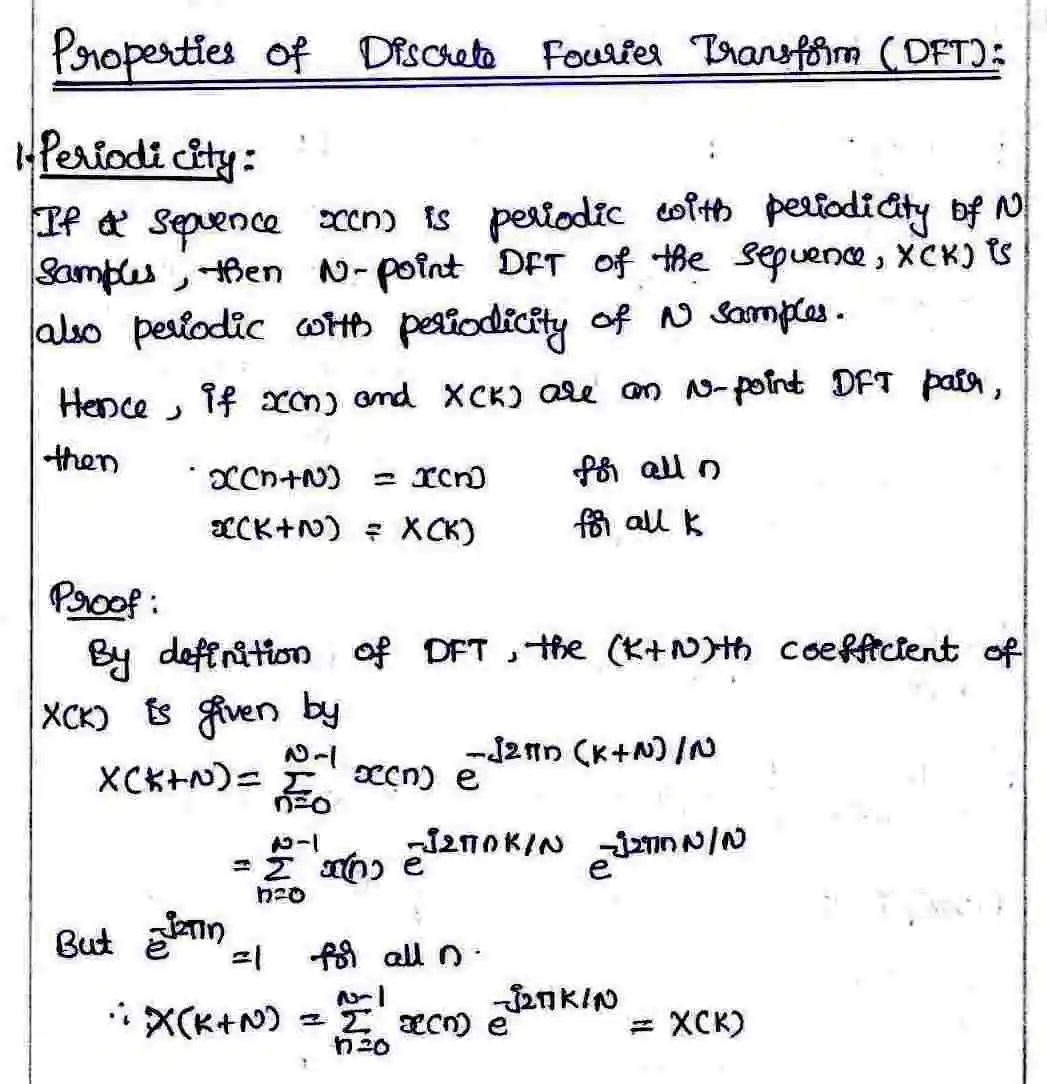 Properties of Discrete Fourier Transform (DFT):
1. Periodicity:
If a sequence x(n) is periodic with periodicity of N
samples, then N-point DFT of the sequence, X(K) is
also periodic with periodicity of N samples.
Hence, if x(n) and X(K) are an N-point DFT pair,
then
x(n+N) = x(n) for all n
x(K+N) = X(K) for all k
Proof:
By definition of DFT, the (K+N)th coefficient of
X(K) is given by
X(K+N) = Σ_{n=0}^{N-1} x(n) e^{-j2πn(K+N)/N}
= Σ_{n=0}^{N-1} x(n) e^{-j2πnK/N} e^{-j2πnN/N}
But e^{-j2πn} = 1 for all n.
∴ X(K+N) = Σ_{n=0}^{N-1} x(n) e^{-j2πK/N} = X(K)